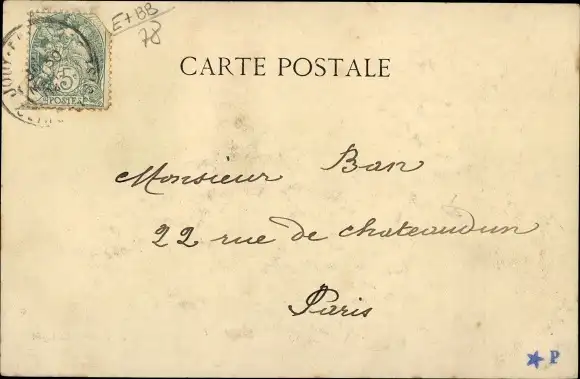 E+BB
78
5c
POSTE
CARTE POSTALE
Monsieur Ban
22 rue de chateaudun
Paris
P